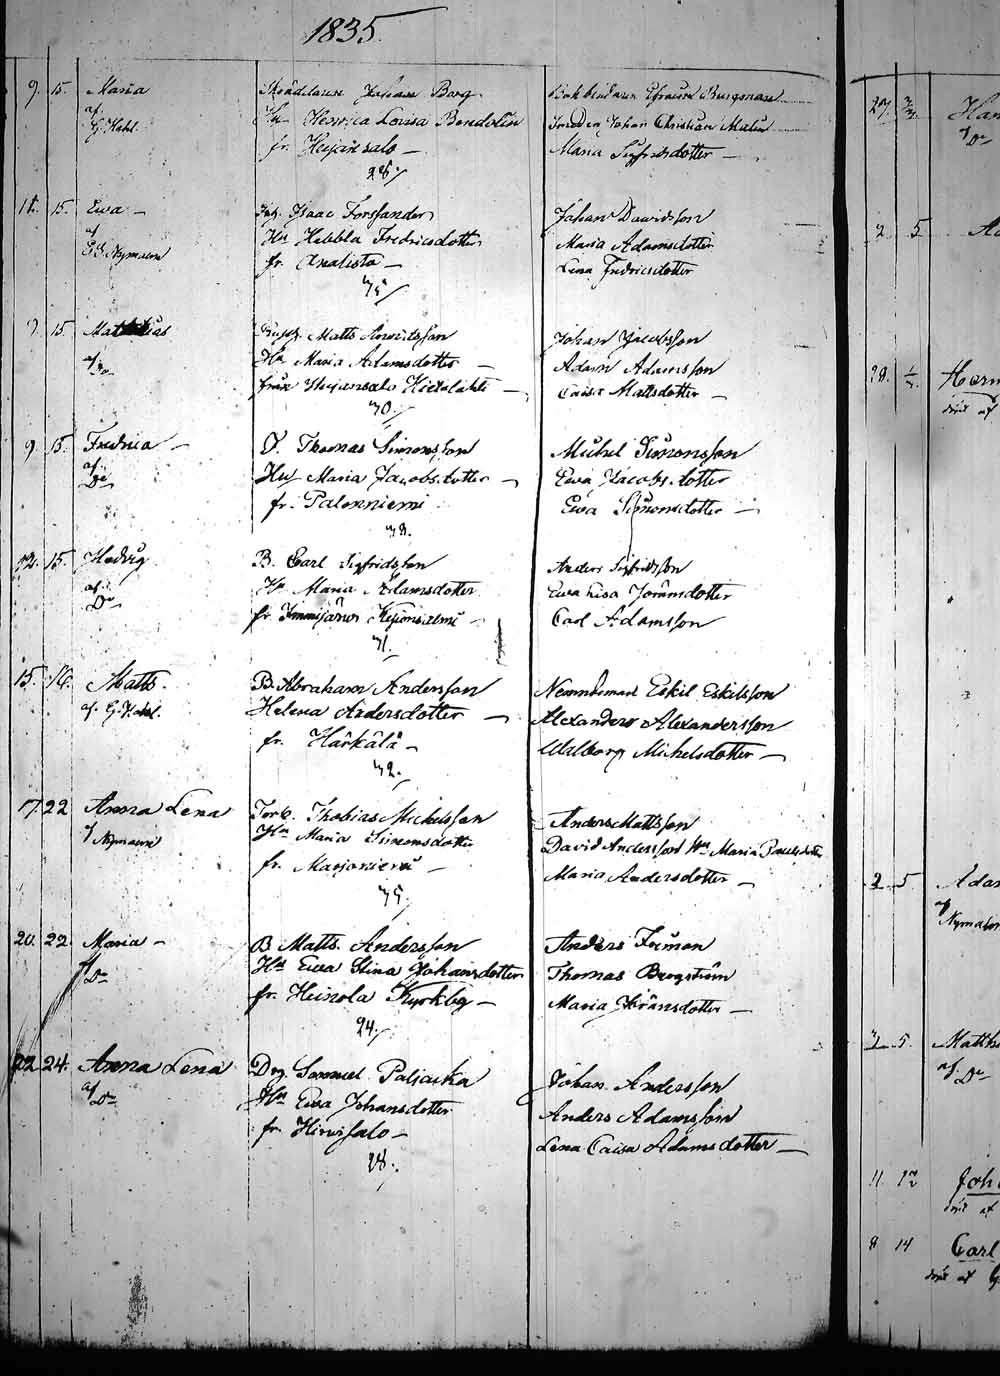 1835.
9. 15. Maria
af
G. Hahl.
Skräddaren Johan Borg
Hu Henrica Lovisa Benderlin
fr. Heijänsalo —
28./
Bokbindaren Efraim
Smeden Johan Christian Malin
Maria Sigfridsdotter —
11. 15. Ewa —
af
Nyman
Isaac Forssander
Hu Hebbla Fredricsdotter
fr. —
Johan Davidsson
Maria Adamsdotter
Lena Fredricsdotter
15. Matthias
af
Do
Matts
Hu Maria Adamsdotter —
från
30./
Johan Jacobsson
Adam Adamsson
Caisa Mattsdotter —
9. 15. Fredrica —
af
Do
D. Thomas Simonsson
Hu Maria Jacobsdotter —
fr. Palonniemi
Michel Simonsson
Ewa Jacobsdotter
Ewa Simonsdotter —
12. 15. Hedvig
af
Do
B. Carl Sigfridsson
Hu Maria Adamsdotter
fr. Immijärvi
31.
Anders Sigfridsson
Ewa Lisa
Carl Adamsson
15. 16. Matts.
af. G. Hahl.
B. Abraham Andersson
Helena Andersdotter —
fr. Härkälä —
32.
Nemndeman Eskil Eskilsson
Alexander Alexandersson
Walborg Michelsdotter —
17. 22 Anna Lena
af
Nyman
Torp. Thobias Michelsson
Hu Maria Simonsdotter
fr. Marjoniemi —
35/
Anders Mattsson
David Andersson Hu Maria Paulsdotter
Maria Andersdotter —
20. 22. Maria —
af
Do
B Matts. Andersson
Hu Ewa Stina Johansdotter
fr. Heinola Kyrkby —
24./
Anders Forman
Thomas Bergström
Maria Göransdotter —
22 24. Anna Lena
af
Do
Drg. Samuel Paljacka
Hu Ewa Johansdotter
fr. Hirvisalo —
28./
Johan Andersson
Anders Adamsson
Lena Caisa Adamsdotter —
27.
Do
2 5
28.
Herm
2 5 Adam
af
Nyman
5. Matth
af. Do
11 Joh
8 14 Carl